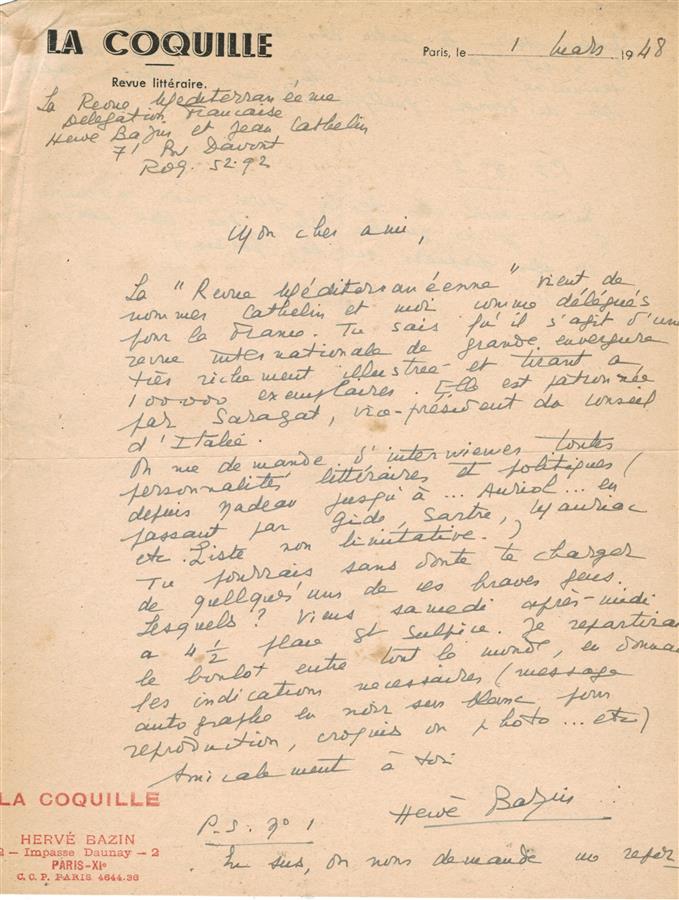 LA COQUILLE
Revue littéraire.
Paris, le 1 Mars 1948
La Revue Méditerranéenne
Délégation Française
Hervé Bazin et Jean Cathelin
71 Davout
ROQ. 52.92
Mon cher ami,
La "Revue Méditerranéenne" vient de
nommer Cathelin et moi comme délégués
pour la France. Tu sais qu'il s'agit d'une
revue internationale de grande envergure
très richement illustrée et tirant à
100000 exemplaires. Elle est patronnée
par Saragat, vice-président du conseil
d'Italie.
On me demande d'interviewer toutes
personnalités littéraires et politiques (
depuis Nadeau jusqu'à ... Auriol ... en
passant par Gide, Sartre, Mauriac
etc. Liste non limitative.)
Tu pourrais sans doute te charger
de quelques'uns de ces braves gens.
Lesquels ? Viens samedi après-midi
à 4½ place St Sulpice. Je repartirai
le boulot entre tout le monde, en donnan
les indications nécessaires (message
autographe en noir sur blanc pour
reproduction, croquis ou photo ... etc)
Amicalement à toi
Hervé Bazin
P.S. nº 1
En sus, on nous demande un
LA COQUILLE
HERVÉ BAZIN
2 — Impasse Daunay — 2
PARIS-XIe
C.C.P. PARIS 4644.36